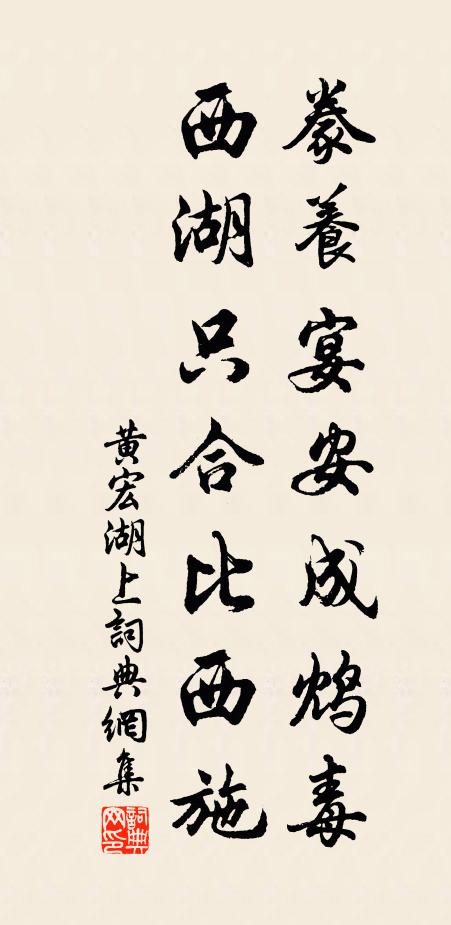 豢養宴安成鴆毒
西湖只合比西施
黃宏湖上詞典網集
詞典网印